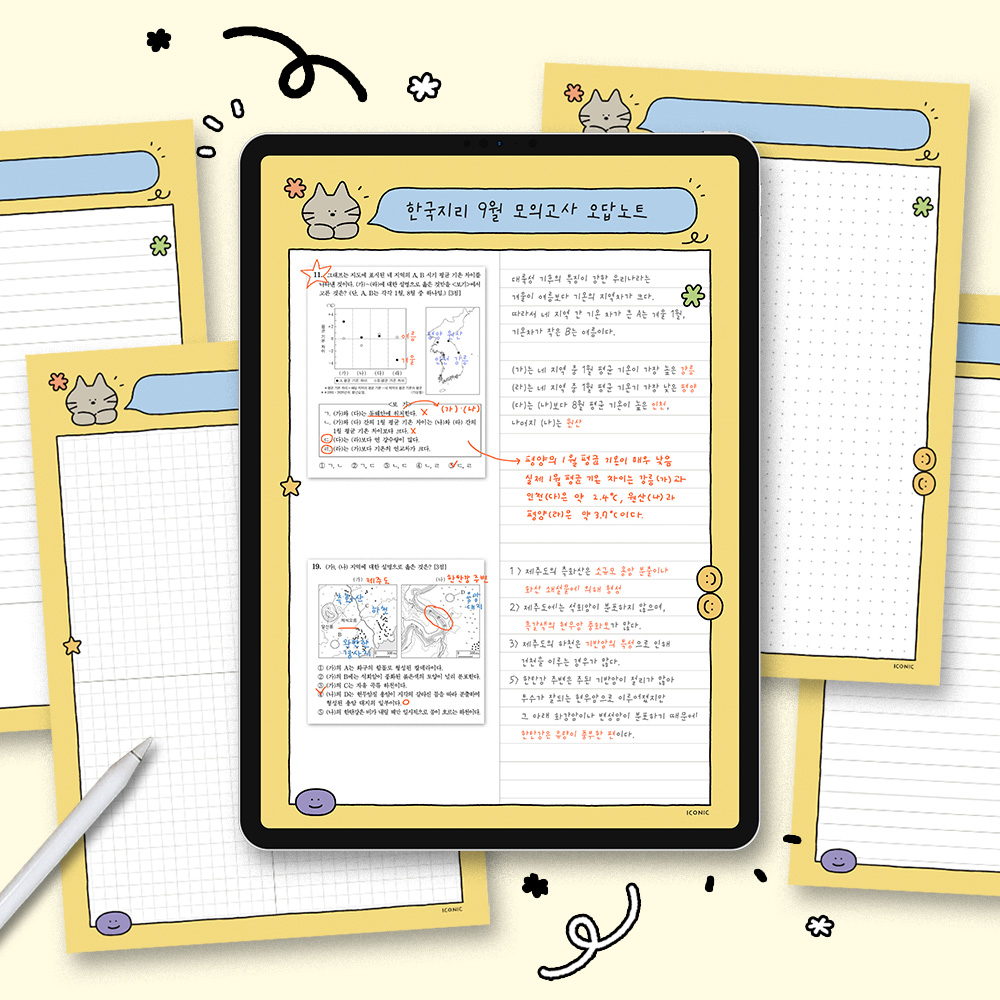 한국지리 9월 모의고사 오답노트
11. 그래프는 지도에 표시된 네 지역의 A, B 시기 평균 기온 차이를
나타낸 것이다. (가)~(라)에 대한 설명으로 옳은 것만을 <보기>에서
고른 것은? (단, A, B는 각각 1월, 8월 중 하나임.) [3점]
여름
겨울
평양 원산
인천 강릉
(가) (나) (다) (라)
<보 기>
(가) (나)
ㄱ. (가)와 (다)는 동해안에 위치한다. X
ㄴ. (가)와 (다) 간의 1월 평균 기온 차이는 (나)와 (라) 간의
1월 평균 기온 차이보다 크다. X
ㄷ. (다)는 (라)보다 연 강수량이 많다.
ㄹ. (라)는 (가)보다 기온의 연교차가 크다.
① ㄱ, ㄴ ② ㄱ, ㄷ ③ ㄴ, ㄷ ④ ㄴ, ㄹ ⑤ ㄷ, ㄹ
대륙성 기후의 특징이 강한 우리나라는
겨울이 여름보다 기온의 지역차가 크다.
따라서 네 지역 간 기온 차가 큰 A는 겨울 1월,
기온차가 작은 B는 여름이다.
(가)는 네 지역 중 1월 평균 기온이 가장 높은 강릉
(라)는 네 지역 중 1월 평균 기온기 가장 낮은 평양
(다)는 (나)보다 8월 평균 기온이 높은 인천,
나머지 (나)는 원산
평양의 1월 평균 기온이 매우 낮음
실제 1월 평균 기온 차이는 강릉(가)과
인천(다)은 약 2.4°C, 원산(나)과
평양(라)은 약 3.7°C이다.
19. (가), (나) 지역에 대한 설명으로 옳은 것은? [3점]
(가) 제주도 (나) 한탄강 주변
하천
용암
대지
완만한
경사지
① (가)의 A는 화구의 함몰로 형성된 칼데라이다.
② (가)의 B에는 석회암이 풍화된 붉은색의 토양이 널리 분포한다.
③ (가)의 C는 자유 곡류 하천이다.
④ (나)의 D는 현무암질 용암이 지각의 갈라진 틈을 따라 분출하여
형성된 용암 대지의 일부이다.
⑤ (나)의 한탄강은 비가 내릴 때만 일시적으로 물이 흐르는 하천이다.
1) 제주도의 측화산은 소규모 용암 분출이나
화산 쇄설물에 의해 형성
2) 제주도에는 석회암이 분포하지 않으며,
흑갈색의 현무암 풍화토가 많다.
3) 제주도의 하천은 기반암의 특성으로 인해
건천을 이루는 경우가 많다.
5) 한탄강 주변은 주된 기반암이 절리가 많아
투수가 잘되는 현무암으로 이루어졌지만
그 아래 화강암이나 변성암이 분포하기 때문에
한탄강은 유량이 풍부한 편이다.
ICONIC
ICONIC
ICONIC